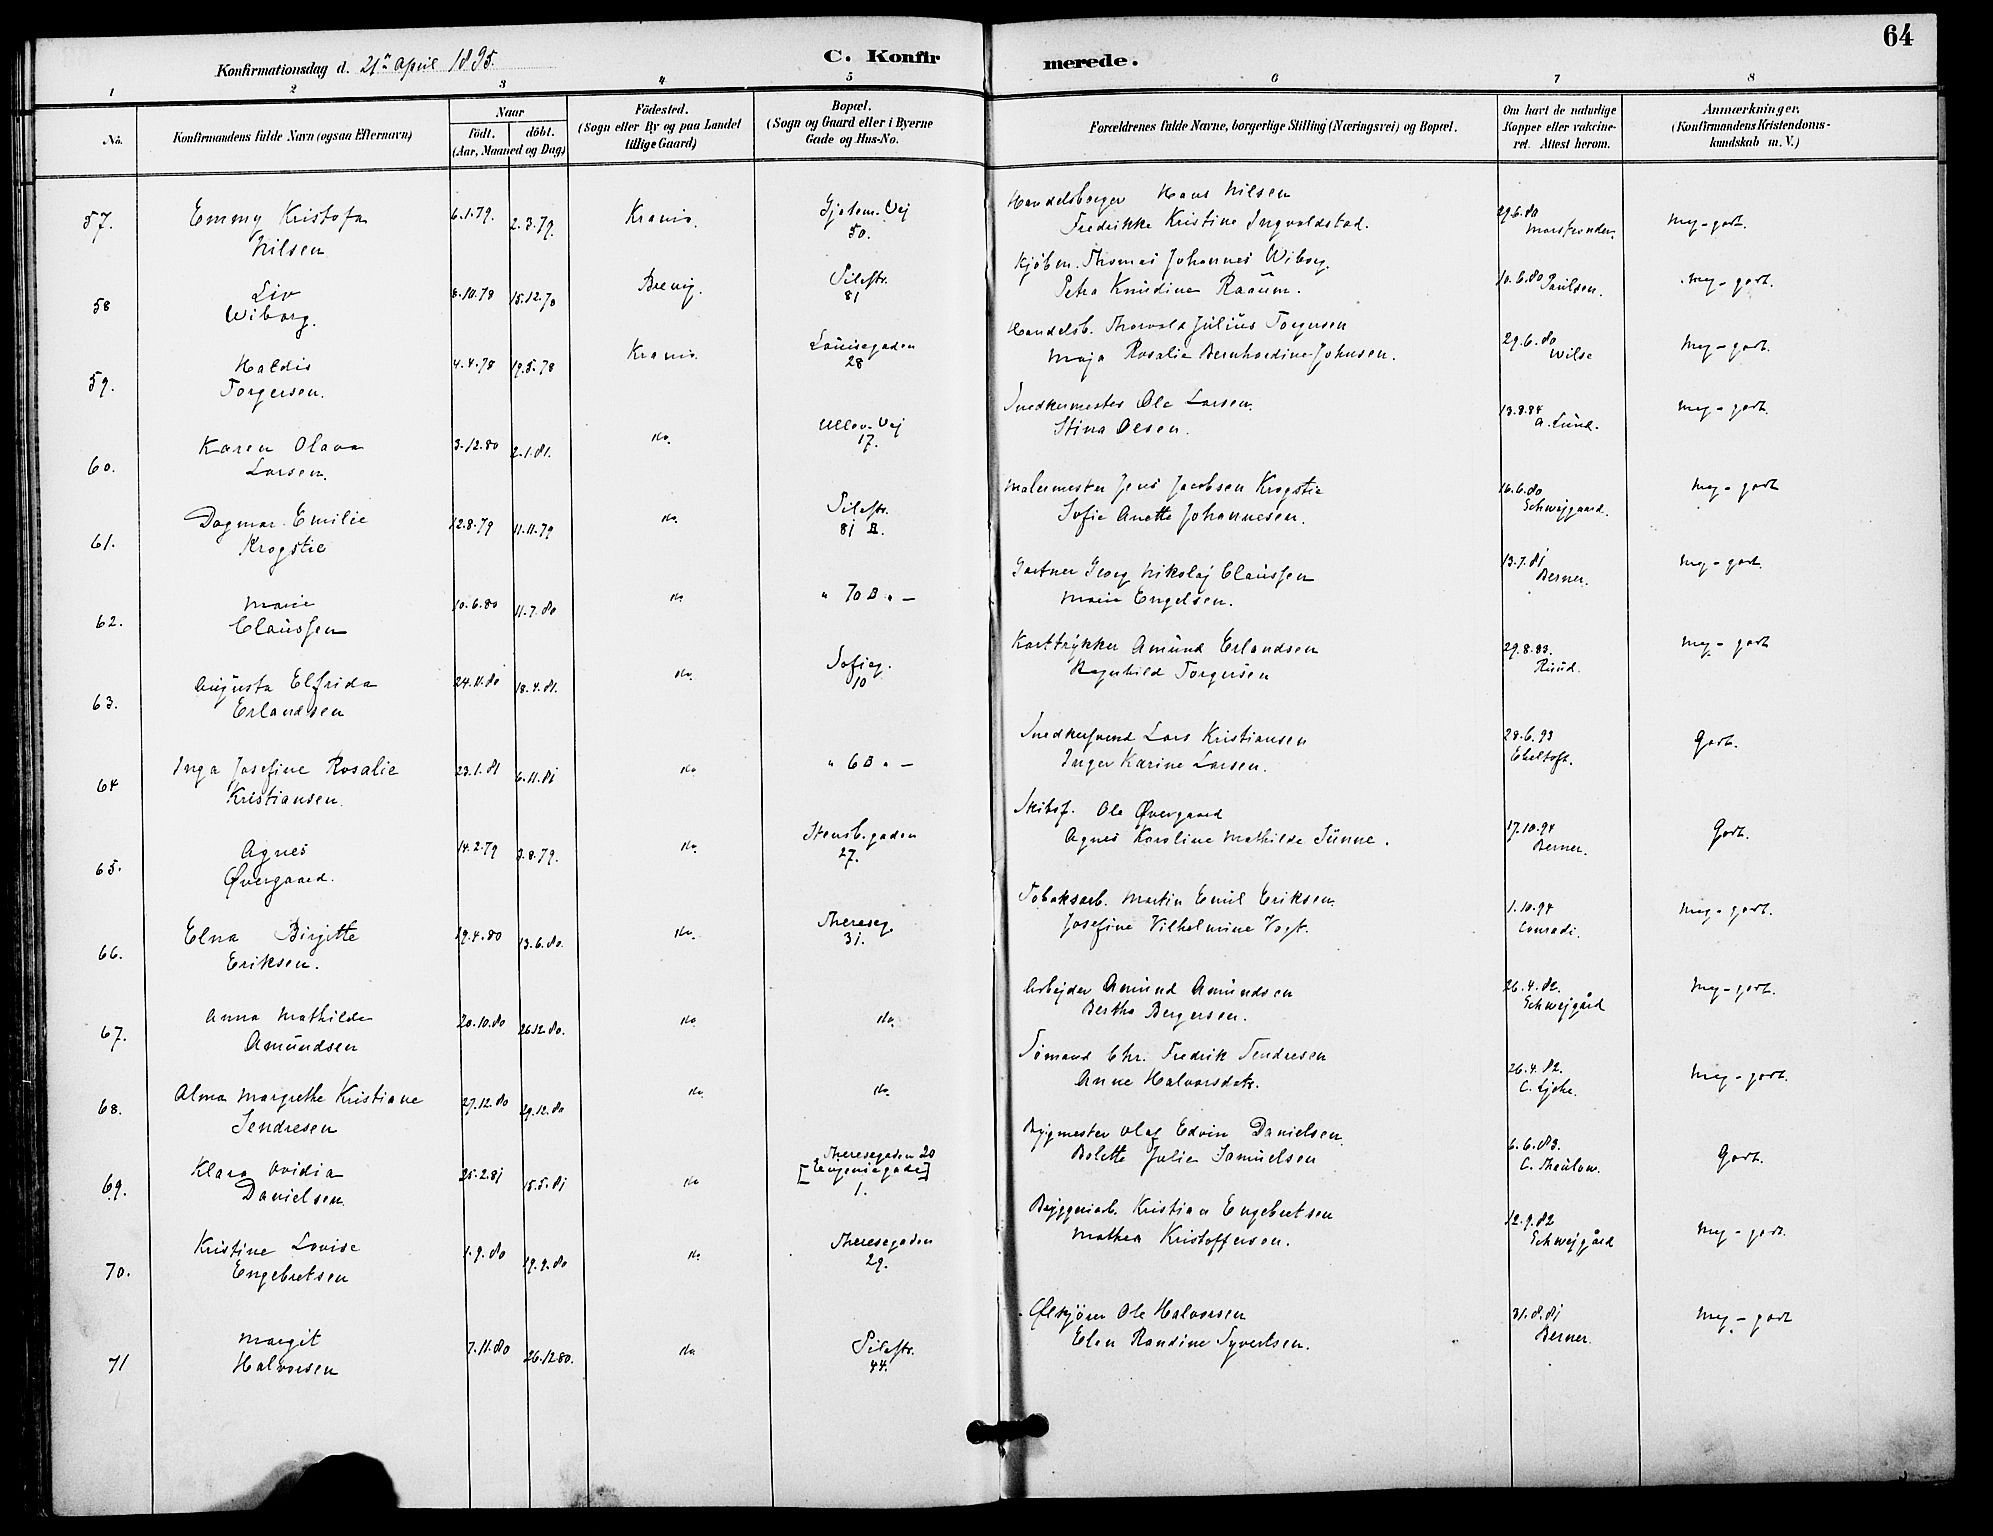 64
Konfirmationsdag d. 21de April 1895.
C. Konfirmerede.
1 2 3 4 5 6 7 8
No. Konfirmandens fulde Navn (ogsaa Efternavn) Naar födt. döbt. (Aar, Maaned og Dag) Födested. (Sogn eller By og paa Landet tillige Gaard) Bopæl. (Sogn og Gaard eller i Byerne Gade og Hus-No. Forældrenes fulde Navne, borgerlige Stilling (Næringsvei) og Bopæl. Om havt de naturlige Kopper eller vakcineret. Attest herom. Anmærkninger. (Konfirmandens Kristendomskundskab m. V.)
57. Emmy Kristofa Nilsen 6.1.79. 2.3.79. Krania. Gjetem. Vej 50. Handelsborger Hans Nilsen Fredrikke Kristine Ingvaldstad. 29.6.80 Morstrander. Meg-godt.
58 Liv Wiborg. 8.10.78 15.12.78 Brevig. Pilestr. 81 Kjøbm. Thomas Johannes Wiborg. Petra Knudine Raaum. 10.6.80 Paulsen. Meg-godt.
59. Haldis Torgersen. 4.4.78 19.5.78 Krania. Louisegaden 28 Handelsb. Thorvald Julius Torgersen Maja Rosalie Bernhardine Johnsen. 29.6.80 Wilse Meg-godt.
60. Karen Olava Larsen. 3.12.80 2.1.81. do. Ullev. Vej 17. Snedkermester Ole Larsen. Stina Olsen. 13.8.84 A. Lund. Meg-godt.
61. Dagmar Emilie Krogstie 12.8.79 11.11.79 do. Pilestr. 81 B. Malermester Jens Jacobsen Krogstie Sofie Anette Johannesen. 16.6.80 Schwejgaard. Meg-godt
62. Marie Claussen 10.6.80 11.7.80 do " 70 B " — Gartner Georg Nikolaj Claussen Marie Engelsen. 13.7.81 Berner. Meg-godt.
63. Augusta Elfrida Erlandsen 24.11.80 18.4.81. do. Sofieg. 10 Korttrykker Amund Erlandsen Ragnhild Torgersen 29.8.83. Ruud. Meg-godt
64 Inga Josefine Rosalie Kristiansen. 23.1.81 6.11.81 do " 6 B " — Snedkersvend Lars Kristiansen Inger Karine Larsen. 28.6.93 Ebeltoft. Godt.
65. Agnes Øvergaard. 14.2.79 3.8.79. do. Stensb.gaden 27. Skibsf. Ole Øvergaard Agnes Karoline Mathilde Sünne. 17.10.94 Berner. Godt.
66. Elna Birgitte Eriksen. 19.4.80 13.6.80. do. Thereseg. 31. Tobaksarb. Martin Emil Eriksen Josefine Vilhelmine Vogt. 1.10.94 Conradi. Meg-godt.
67. Anna Mathilde Amundsen 20.10.80 26.12.80. do do. Arbejder Amund Amundsen Bertha Bergersen. 26.4.82. Schwejgård Meg-godt.
68. Alma Margrethe Kristiane Sendresen 27.12.80 29.12.80 do. do. Sømand Chr. Fredrik Sendresen Anne Halvorsdatr. 26.4.82. Meg-godt.
69. Klara Ovidia Danielsen 25.2.81 15.5.81 do Theresegaden 20 [Eugeniagade] 1. Bygmester Olaf Edvin Danielsen. Bolette Julie Samuelsen 6.6.83. C. Thaulow. Godt.
70. Kristine Lovise Engebretsen 1.9.80 19.9.80 do Theresegaden 29. Bryggeriarb. Kristian Engebretsen Mathea Kristoffersen. 12.9.82 Schwejgård Meg-godt.
71 Margit Halvorsen 7.11.80 26.12.80. do. Pilestr. 44. Ølkjører Ole Halvorsen Elen Randine Syvertsen. 31.8.81 Berner. Meg-godt